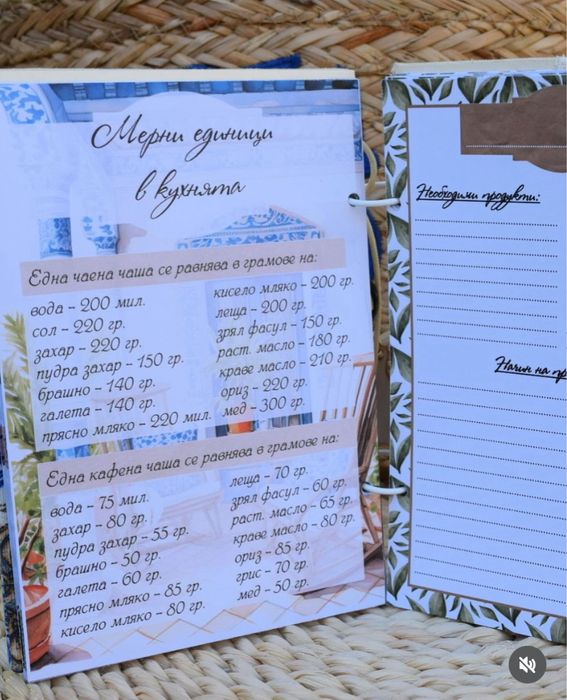 Мерни единици
в кухнята
Една чаена чаша се равнява в грамове на:
вода - 200 мил.
сол - 220 гр.
захар - 220 гр.
пудра захар - 150 гр.
брашно - 140 гр.
галета - 140 гр.
прясно мляко - 220 мил.
кисело мляко - 200 гр.
леща - 200 гр.
зрял фасул - 150 гр.
раст. масло - 180 гр.
краве масло - 210 гр.
ориз - 220 гр.
мед - 300 гр.
Една кафена чаша се равнява в грамове на:
вода - 75 мил.
захар - 80 гр.
пудра захар - 55 гр.
брашно - 50 гр.
галета - 60 гр.
прясно мляко - 85 гр.
кисело мляко - 80 гр.
леща - 70 гр.
зрял фасул - 60 гр.
раст. масло - 65 гр.
краве масло - 80 гр.
ориз - 85 гр.
грис - 70 гр.
мед - 50 гр.
Необходими продукти:
Начин на пр